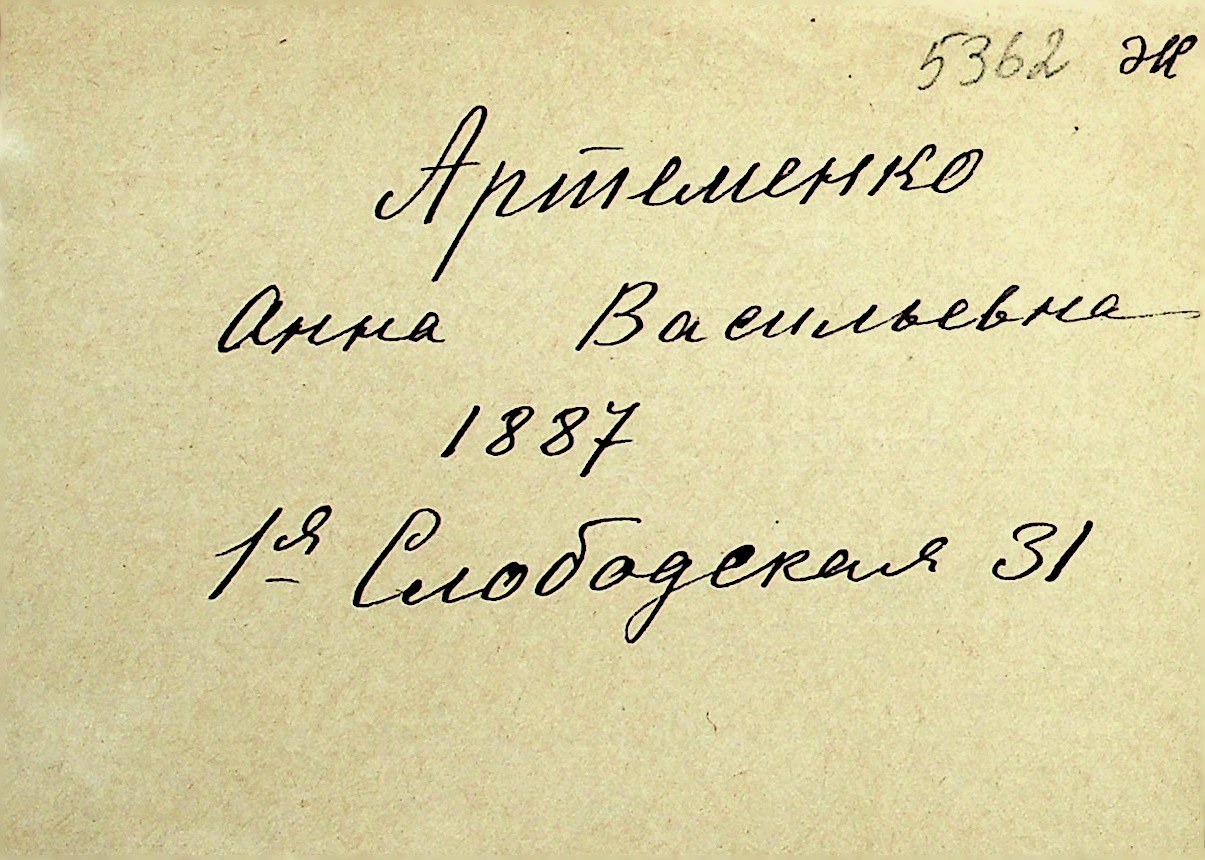 5362 ж
Артеменко
Анна Васильевна
1887
1я Слободская 31